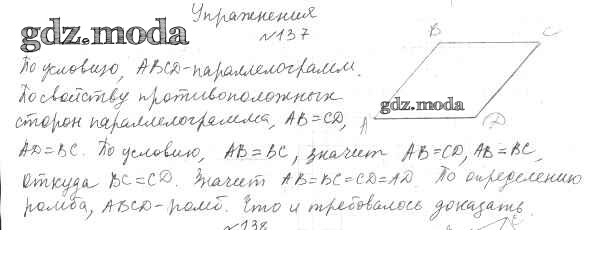 Упражнения
gdz.moda №137
B C
По условию, ABCD-параллелограмм.
По свойству противоположных
gdz.moda
сторон параллелограмма, AB=CD, A D
AD=BC. По условию, AB=BC, значит AB=CD, AB=BC,
откуда BC=CD. Значит AB=BC=CD=AD. По определению
ромба, ABCD-ромб. Что и требовалось доказать.
№138